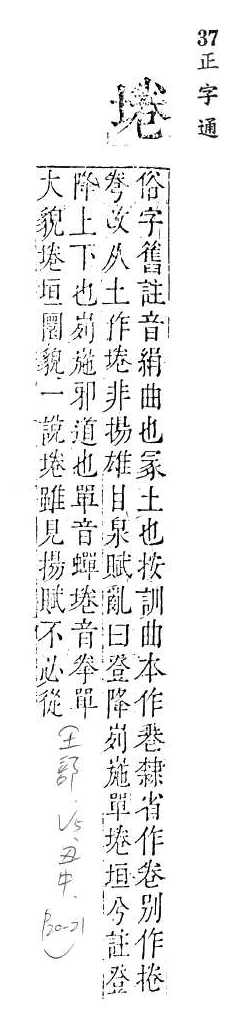 37
正字通
埢
俗字舊註音絹曲也冡土也按訓曲本作𢍏隸省作卷別作捲
弮改从土作埢非揚雄甘泉賦亂曰登降峛崺單埢垣兮註登
降上下也峛崺邪道也單音蟬埢音拳單
大貌埢垣圜貌一說埢雖見揚賦不必從
(土部.
丑中.
P20-21)